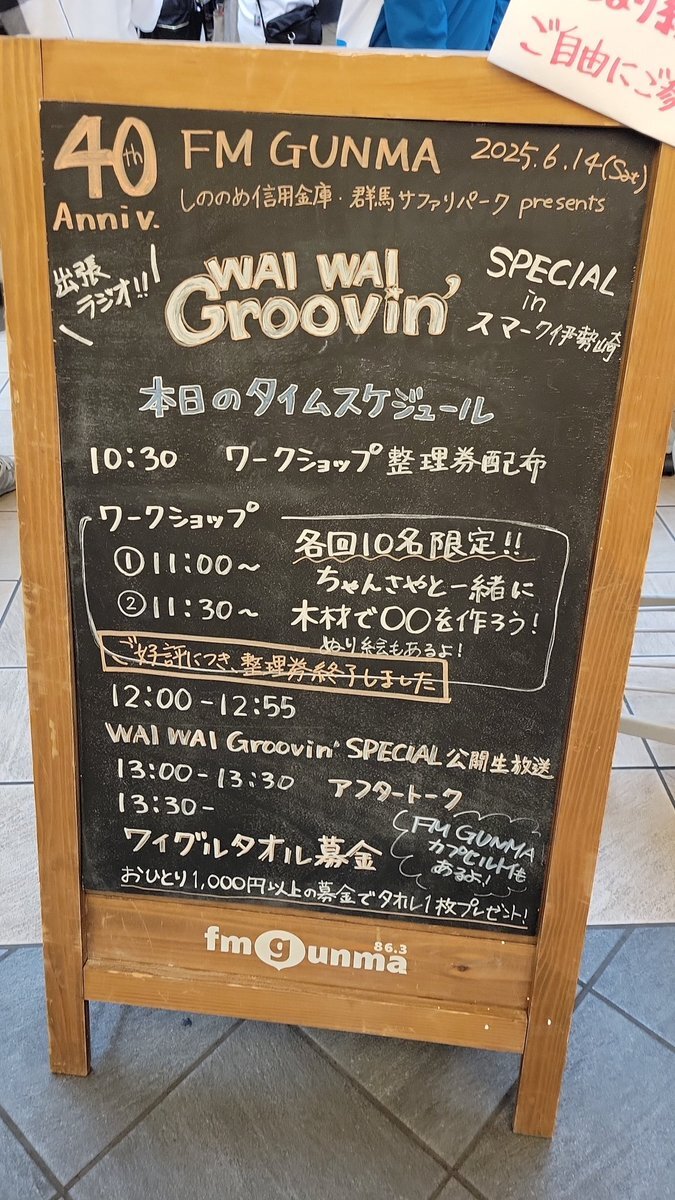 ご自由にご参
40th
Anniv.
FM GUNMA
2025.6.14(Sat)
しののめ信用金庫・群馬サファリパーク presents
出張
ラジオ!!
WAI WAI
Groovin'
SPECIAL
in
スマーク伊勢崎
本日のタイムスケジュール
10:30 ワークショップ整理券配布
ワークショップ
①11:00〜
②11:30〜
各回10名限定!!
ちゃんさやと一緒に
木材で〇〇を作ろう!
ぬり絵もあるよ!
ご好評につき、整理券終了しました
12:00-12:55
WAI WAI Groovin' SPECIAL 公開生放送
13:00-13:30 アフタートーク
13:30-
ワイグルタオル募金
FM GUNMA
カプセルトイも
あるよ!
おひとり1,000円以上の募金でタオル1枚プレゼント!
fm gunma
86.3